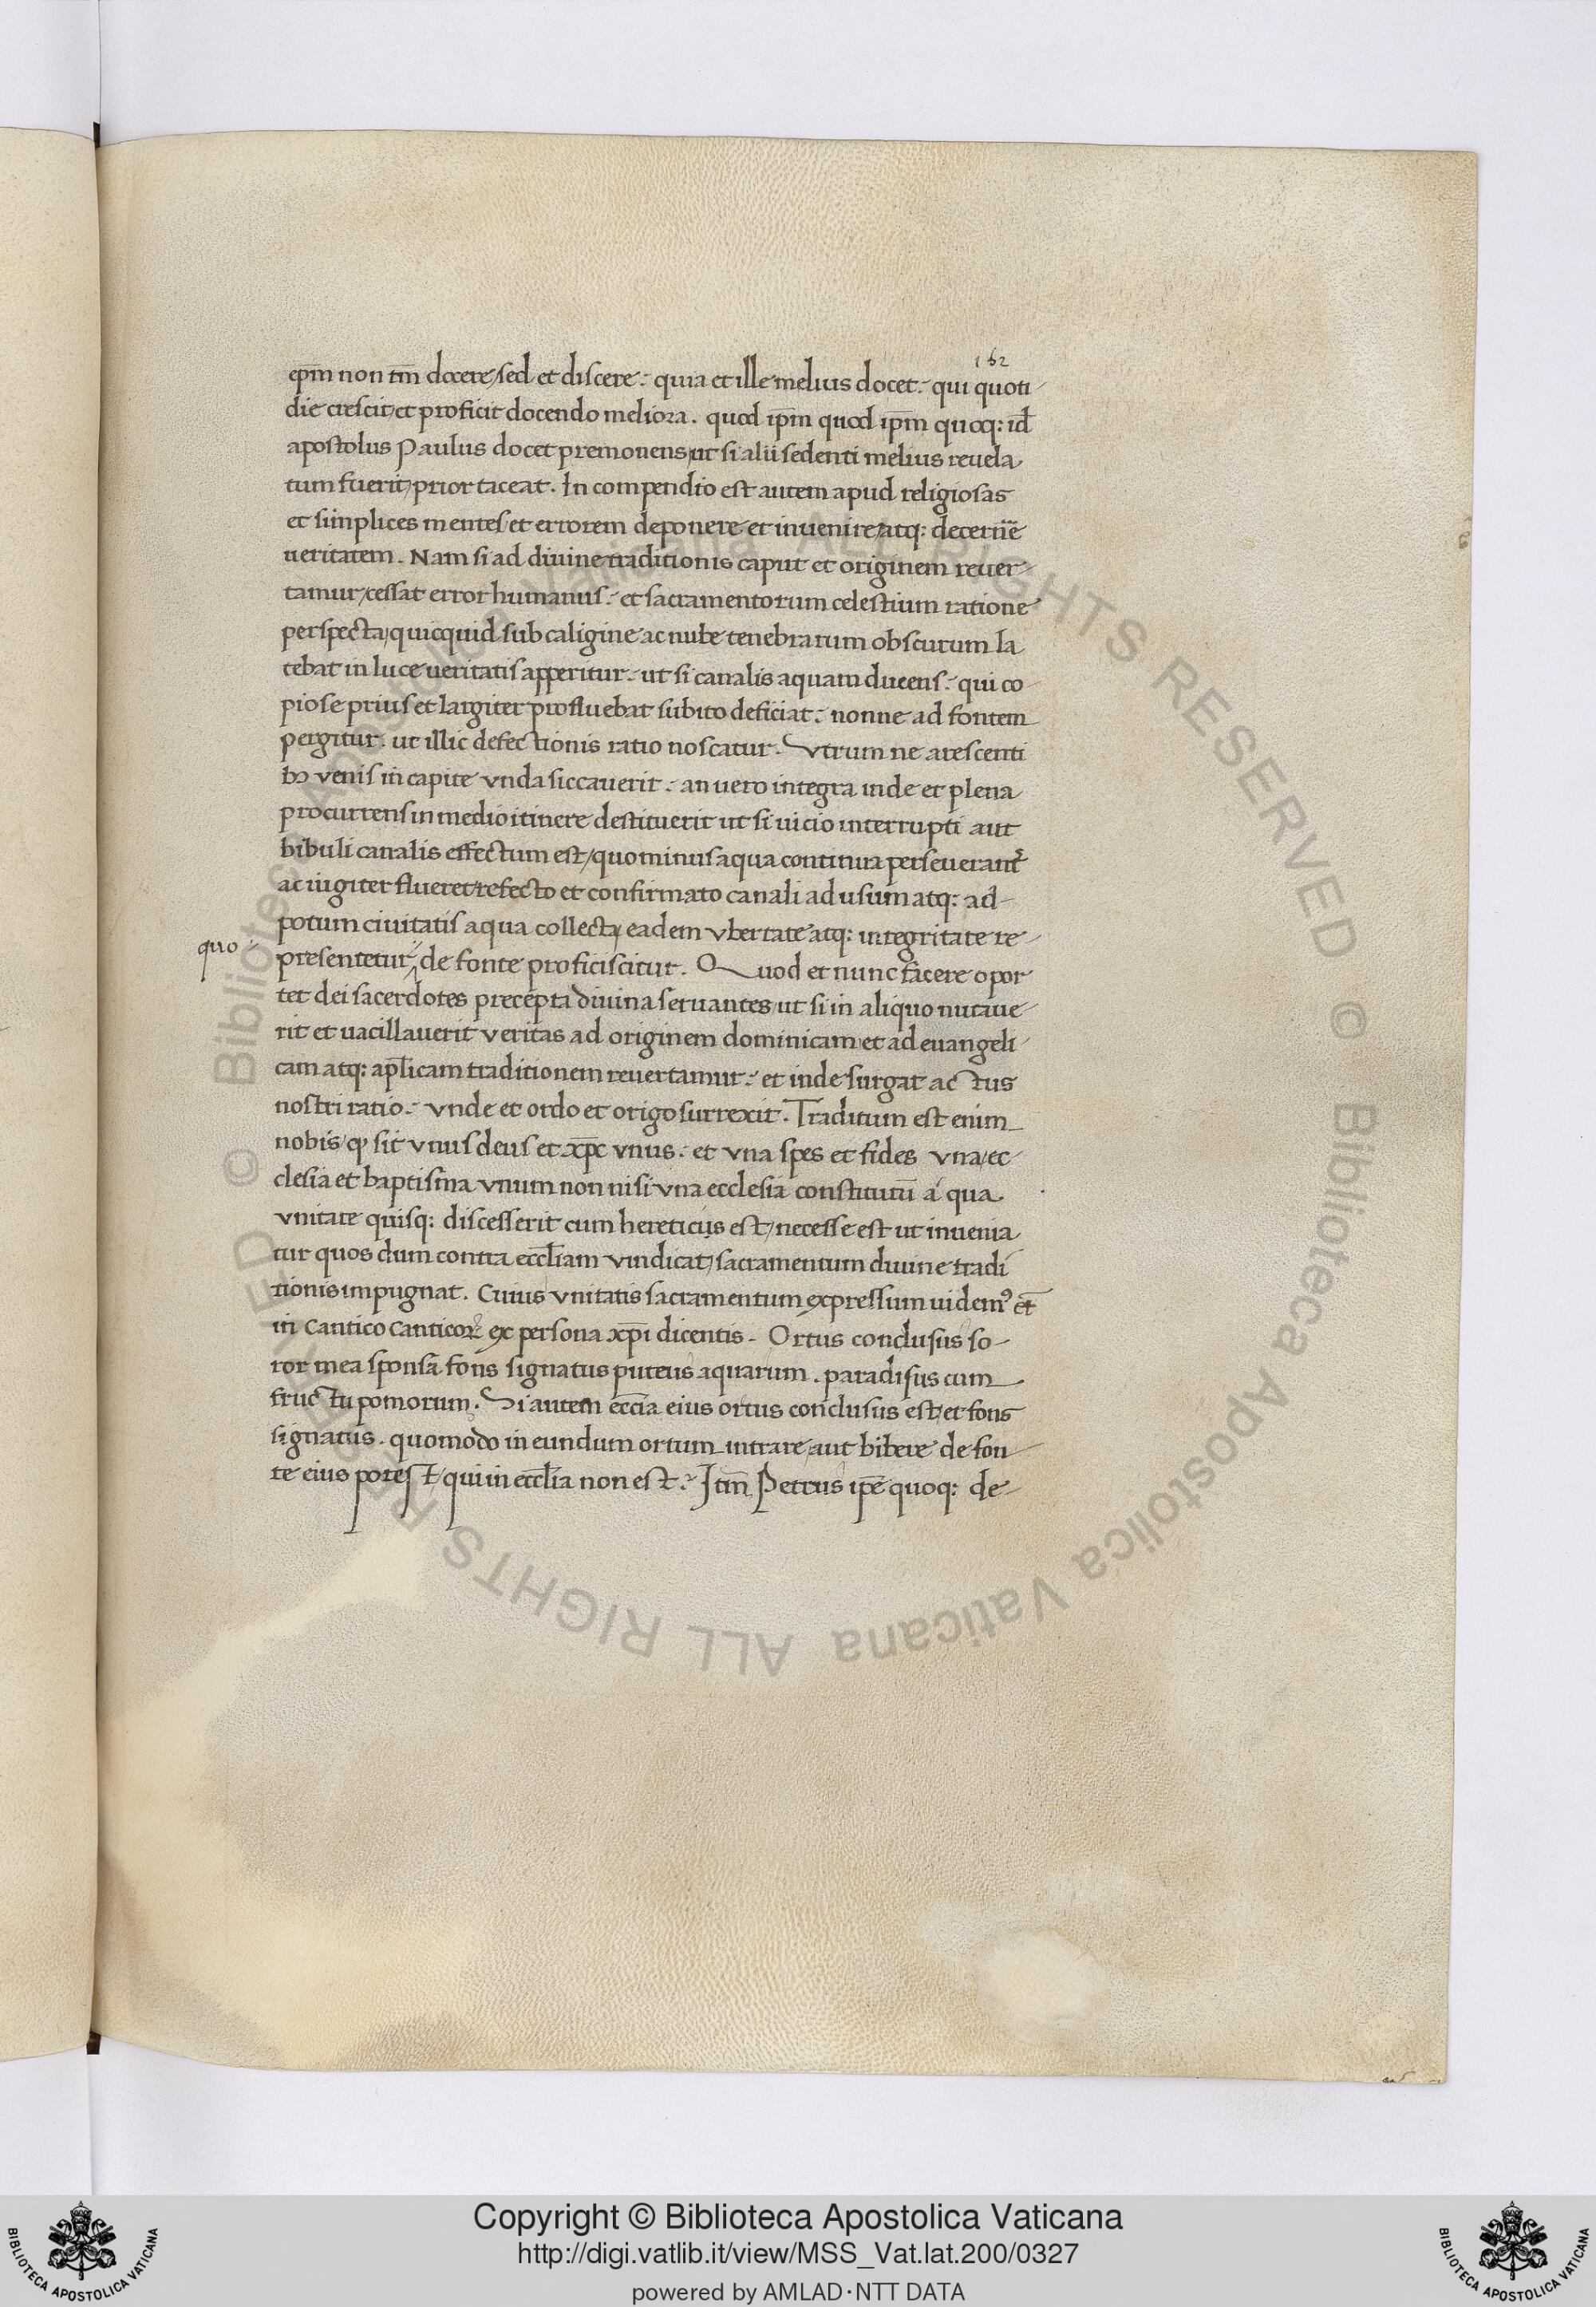 162
ep̄m non tm̄ docere/sed et discere: quia et ille melius docet: qui quoti
die crescit/et proficit docendo meliora. quod ip̄m quod ip̄m quoq: id
apostolus Paulus docet premonens/ut si alii sedenti melius reuela
tum fuerit/prior taceat. In compendio est autem apud religiosas
et simplices mentes/et errorem deponere et inuenire/atq: decern̄e
ueritatem. Nam si ad diuine traditionis caput et originem reuer
tamur/cessat error humanus: et sacramentorum celestium ratione
perspecta/quicquid sub caligine ac nube tenebrarum obscurum la
tebat in luce ueritatis apperitur: ut si canalis aquam ducens: qui co
piose prius et largiter profluebat subito deficiat: nonne ad fontem
pergitur. ut illic defectionis ratio noscatur. Vtrum ne arescenti
bɜ venis in capite vnda siccauerit: an uero integra inde et plena
procurrens in medio itinere destituerit ut si uicio interrupti aut
bibuli canalis effectum est/quominus aqua continua perseuerant᷑
ac iugiter flueret/refecto et confirmato canali ad usum atq: ad
potum ciuitatis aqua collecta/eadem vbertate atq: integritate re
quo
presentetur/de fonte proficiscitur. Quod et nunc facere opor
tet dei sacerdotes precepta diuina seruantes/ut si in aliquo nutaue
rit et uacillauerit veritas ad originem dominicam et ad euangeli
cam atq: apl̄icam traditionem reuertamur: et inde surgat actus
nostri ratio: vnde et ordo et origo surrexit. Traditum est enim
nobis/ꝙ sit vnus deus et xp̄c vnus: et vna spes et fides vna/ec
clesia et baptisma vnum non nisi vna ecclesia constitutū a qua
vnitate quisq: discesserit cum hereticis est/necesse est ut inuenia
tur quos dum contra eccl̄iam vindicat/sacramentum diuine tradi
tionis impugnat. Cuius vnitatis sacramentum expressum uidemꝰ et̄
in Cantico Canticoꝝ ex persona xp̄i dicentis. Ortus conclusus so
ror mea sponsa fons signatus puteus aquarum. paradisus cum
fructu pomorum. Si autem ecc̄ia eius ortus conclusus est/et fons
signatus. quomodo in eundum ortum intrare/aut bibere de fon
te eius potest/qui in eccl̄ia non est. Itm̄ Petrus ip̄e quoq: de
Copyright © Biblioteca Apostolica Vaticana
http://digi.vatlib.it/view/MSS_Vat.lat.200/0327
powered by AMLAD·NTT DATA
BIBLIOTECA APOSTOLICA VATICANA
BIBLIOTECA APOSTOLICA VATICANA
© Biblioteca Apostolica Vaticana ALL RIGHTS RESERVED © Biblioteca Apostolica Vaticana ALL RIGHTS RESERVED